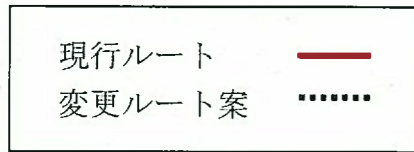 現行ルート
変更ルート案